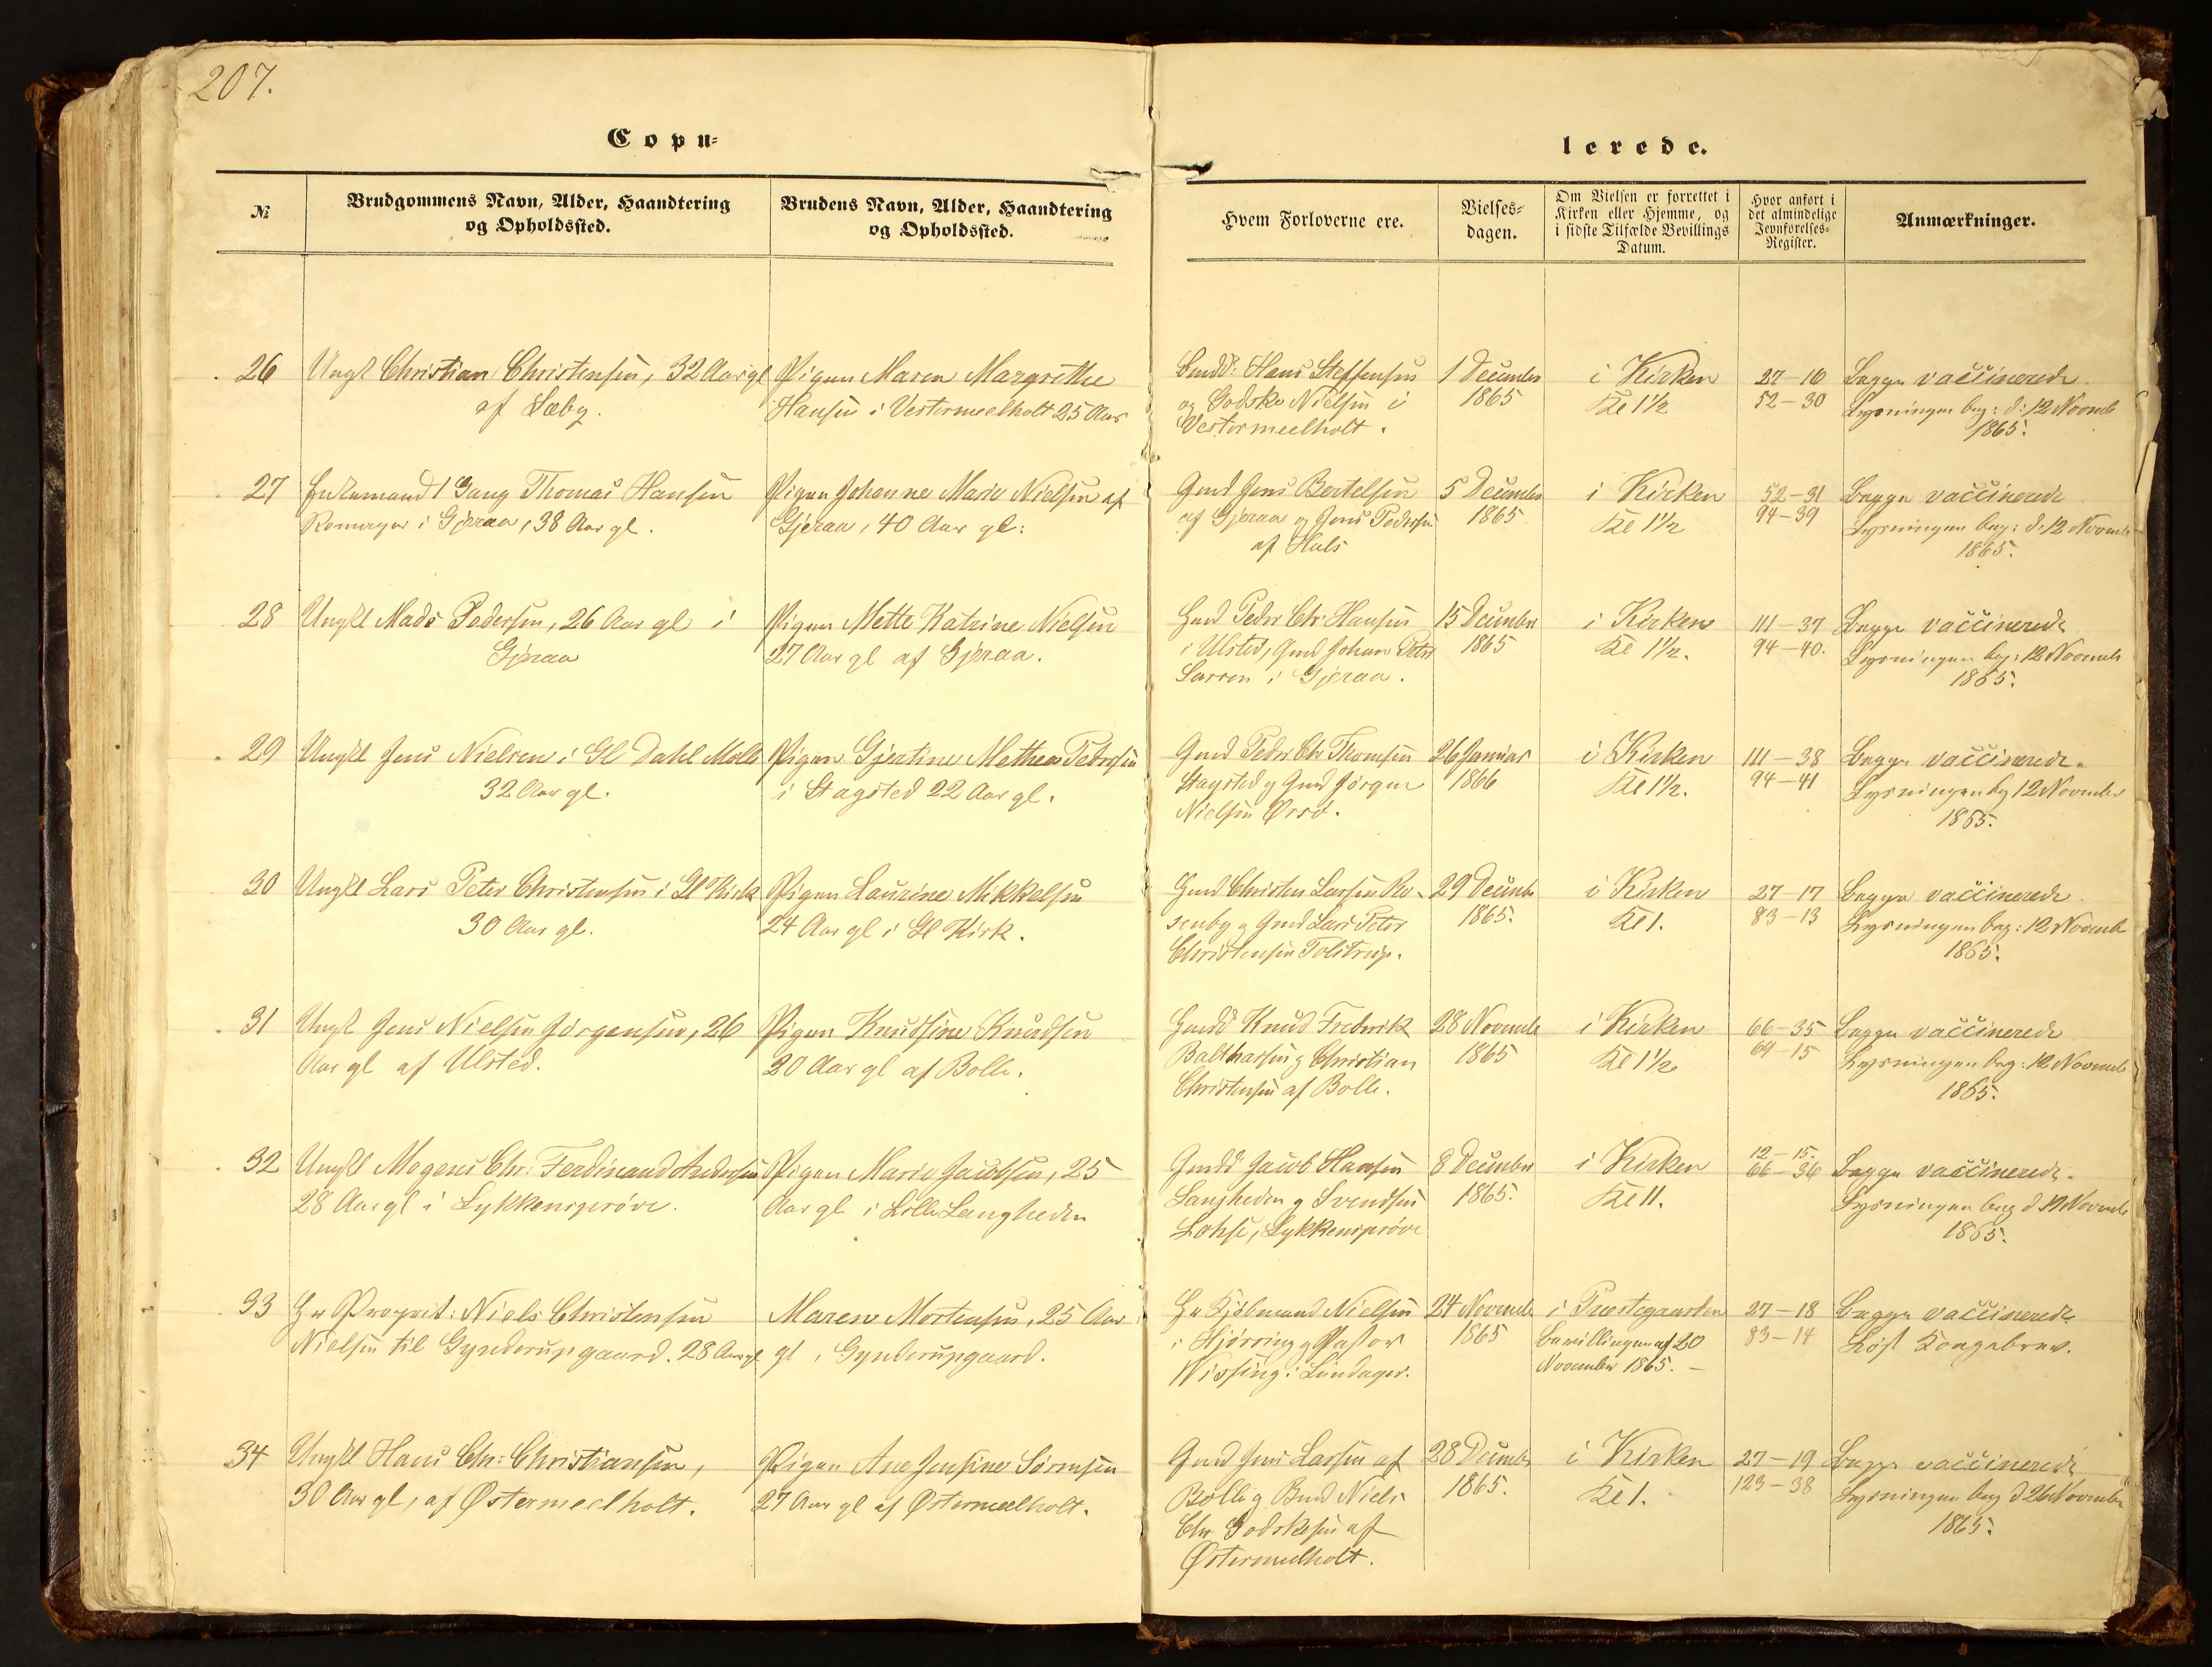 207.
Copu=
lerede.
№
Brudgommens Navn, Alder, Haandtering
og Opholdssted.
Brudens Navn, Alder, Haandtering
og Opholdssted.
Hvem Forloverne ere.
Vielses=
dagen.
Om Vielsen er forrettet i
Kirken eller Hjemme, og
i sidste Tilfælde Bevillings
Datum.
Hvor anført i
det almindelige
Jevnførelses=
Register.
Anmærkninger.
26
Ungk Christian Christensen, 32 Aar gl
af Sæby.
Pigen Maren Margrethe
Hansen i Vestermeelholt 25 Aar
Hans Steffensen
og Godske Nielsen i
Vestermeelholt.
1 December
1865
i Kirken
Kl 1½
27-16
52-30
Begge vaccinerede
Lysningen beg: d: 12 Novemb
1865.
27
Enkemand 1 Gang Thomas Hansen
i Gjeraa, 38 Aar gl.
Pigen Johanne Marie Nielsen af
Gjeraa, 40 Aar gl:
Gmd Jens Bertelsen
af Gjeraa og Jens Pedersen
af Hals
5 December
1865
i Kirken
Kl 1½
52-31
94-39
Begge vaccinerede
Lysningen beg: d. 12 Novemb
1865.
28
Ungkl Mads Pedersen, 26 Aar gl i
Gjeraa
Pigen Mette Katrine Nielsen
27 Aar gl af Gjeraa.
Gmd Peder Chr Hansen
i Ulsted, Gmd Johan Peter
Larsen i Gjeraa.
15 December
1865
i Kirken
Kl 1½.
111-37
94-40.
Begge vaccinerede
Lysningen beg: 12 Novemb
1865.
29
Ungkl Jens Nielsen i Gl Dahl Mølle
32 Aar gl.
Pigen Gjertine Mathea Pedersen
i Stagsted 22 Aar gl.
Gmd Peder Chr Thomsen
Stagsted og Gmd Jørgen
Nielsen Ørsø.
26 Januar
1866
i Kirken
Kl 1½.
111-38
94-41
Begge vaccinerede.
Lysningen beg 12 November
1865.
30
Ungkl Lars Peter Christensen i Gl Kirk
30 Aar gl.
Pigen Laurine Mikkelsen
24 Aar gl i Gl Kirk.
Gmd Christen Larsen Ro-
senby og Gmd Lars Peter
Christensen Tolstrup.
29 Decemb
1865.
i Kirken
Kl 1.
27-17
83-13
Begge vaccinerede
Lysningen beg: 12 Novemb
1865.
31
Ungk Jens Nielsen Jørgensen, 26
Aar gl af Ulsted.
Pigen Knudsine Knudsen
20 Aar gl af Bolle.
Gmdd Knud Frederik
Balthasen og Christian
Christensen af Bolle.
28 Novemb
1865
i Kirken
Kl 1½
66-35
64-15
Begge vaccinerede
Lysningen beg: 12 Novemb
1865.
32
Ungkl Mogens Chr: Ferdinand Andersen
28 Aar gl i Lykkensprøve.
Pigen Marie Jacobsen, 25
Aar gl i Lille Langheden
Gmdd Jacob Hansen
Langheden og Svendsen
Lohse, Lykkensprøve
8 December
1865.
i Kirken
Kl 11.
12-15.
66-36
Begge vaccinerede.
Lysningen beg d 19 Novemb
1865.
33
Hr Proprit: Niels Christensen
Nielsen til Gynderupgaard. 28 Aar gl
Maren Mortensen, 25 Aar
gl i Gynderupgaard.
Hr Kjøbmand Nielsen
i Hjørring og Pastor
Wissing i
24 Novemb
1865
i Præstegaarden
Bevillingen af 20
November 1865. -
27-18
83-14
Begge vaccinerede
Løst Kongebrev.
34
Ungkl Hans Chr: Christiansen,
30 Aar gl, af Østermeelholt.
Pigen Ane Jensine Sørensen
27 Aar gl af Østermeelholt.
Gmd Jens Larsen af
Bolle og Bmd Niels
Chr Godskesen af
Østermeelholt.
28 Decemb
1865.
i Kirken
Kl 1.
27-19
123-38
Begge vaccinerede
Lysningen beg d 26 November
1865.